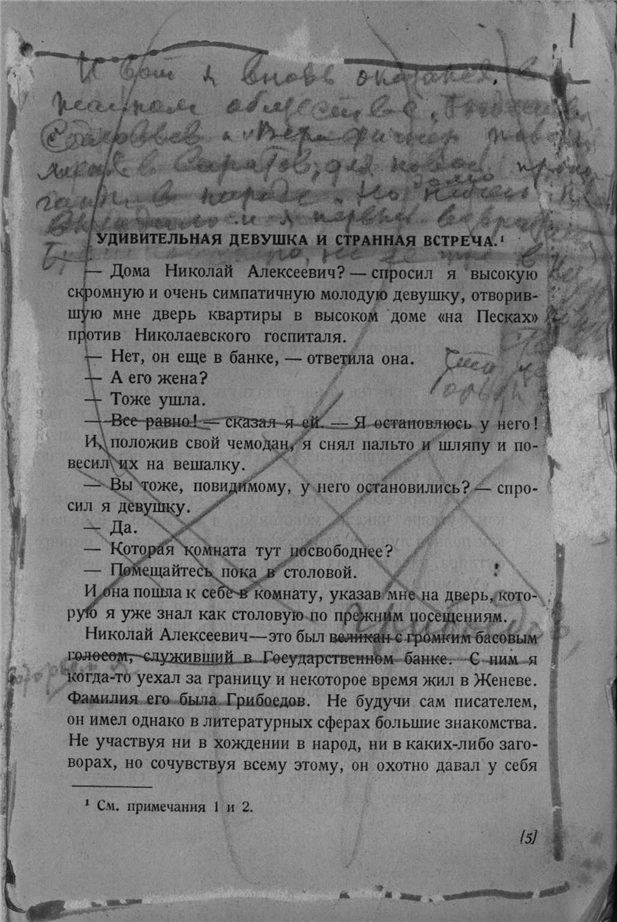 1
И вот я вновь оказался в
обществе
в Саратов, для новой
в народе. Но
и я первый
УДИВИТЕЛЬНАЯ ДЕВУШКА И СТРАННАЯ ВСТРЕЧА.¹
— Дома Николай Алексеевич? — спросил я высокую
скромную и очень симпатичную молодую девушку, отворив-
шую мне дверь квартиры в высоком доме «на Песках»
против Николаевского госпиталя.
— Нет, он еще в банке, — ответила она.
— А его жена?
— Тоже ушла.
— Все равно! — сказал я ей. — Я остановлюсь у него!
И, положив свой чемодан, я снял пальто и шляпу и по-
весил их на вешалку.
— Вы тоже, повидимому, у него остановились? — спро-
сил я девушку.
— Да.
— Которая комната тут посвободнее?
— Помещайтесь пока в столовой.
И она пошла к себе в комнату, указав мне на дверь, кото-
рую я уже знал как столовую по прежним посещениям.
Грибоедов,
Николай Алексеевич—это был великан с громким басовым
голосом, служивший в Государственном банке. С ним я
когда-то уехал за границу и некоторое время жил в Женеве.
Фамилия его была Грибоедов. Не будучи сам писателем,
он имел однако в литературных сферах большие знакомства.
Не участвуя ни в хождении в народ, ни в каких-либо заго-
ворах, но сочувствуя всему этому, он охотно давал у себя
¹ См. примечания 1 и 2.
(5)